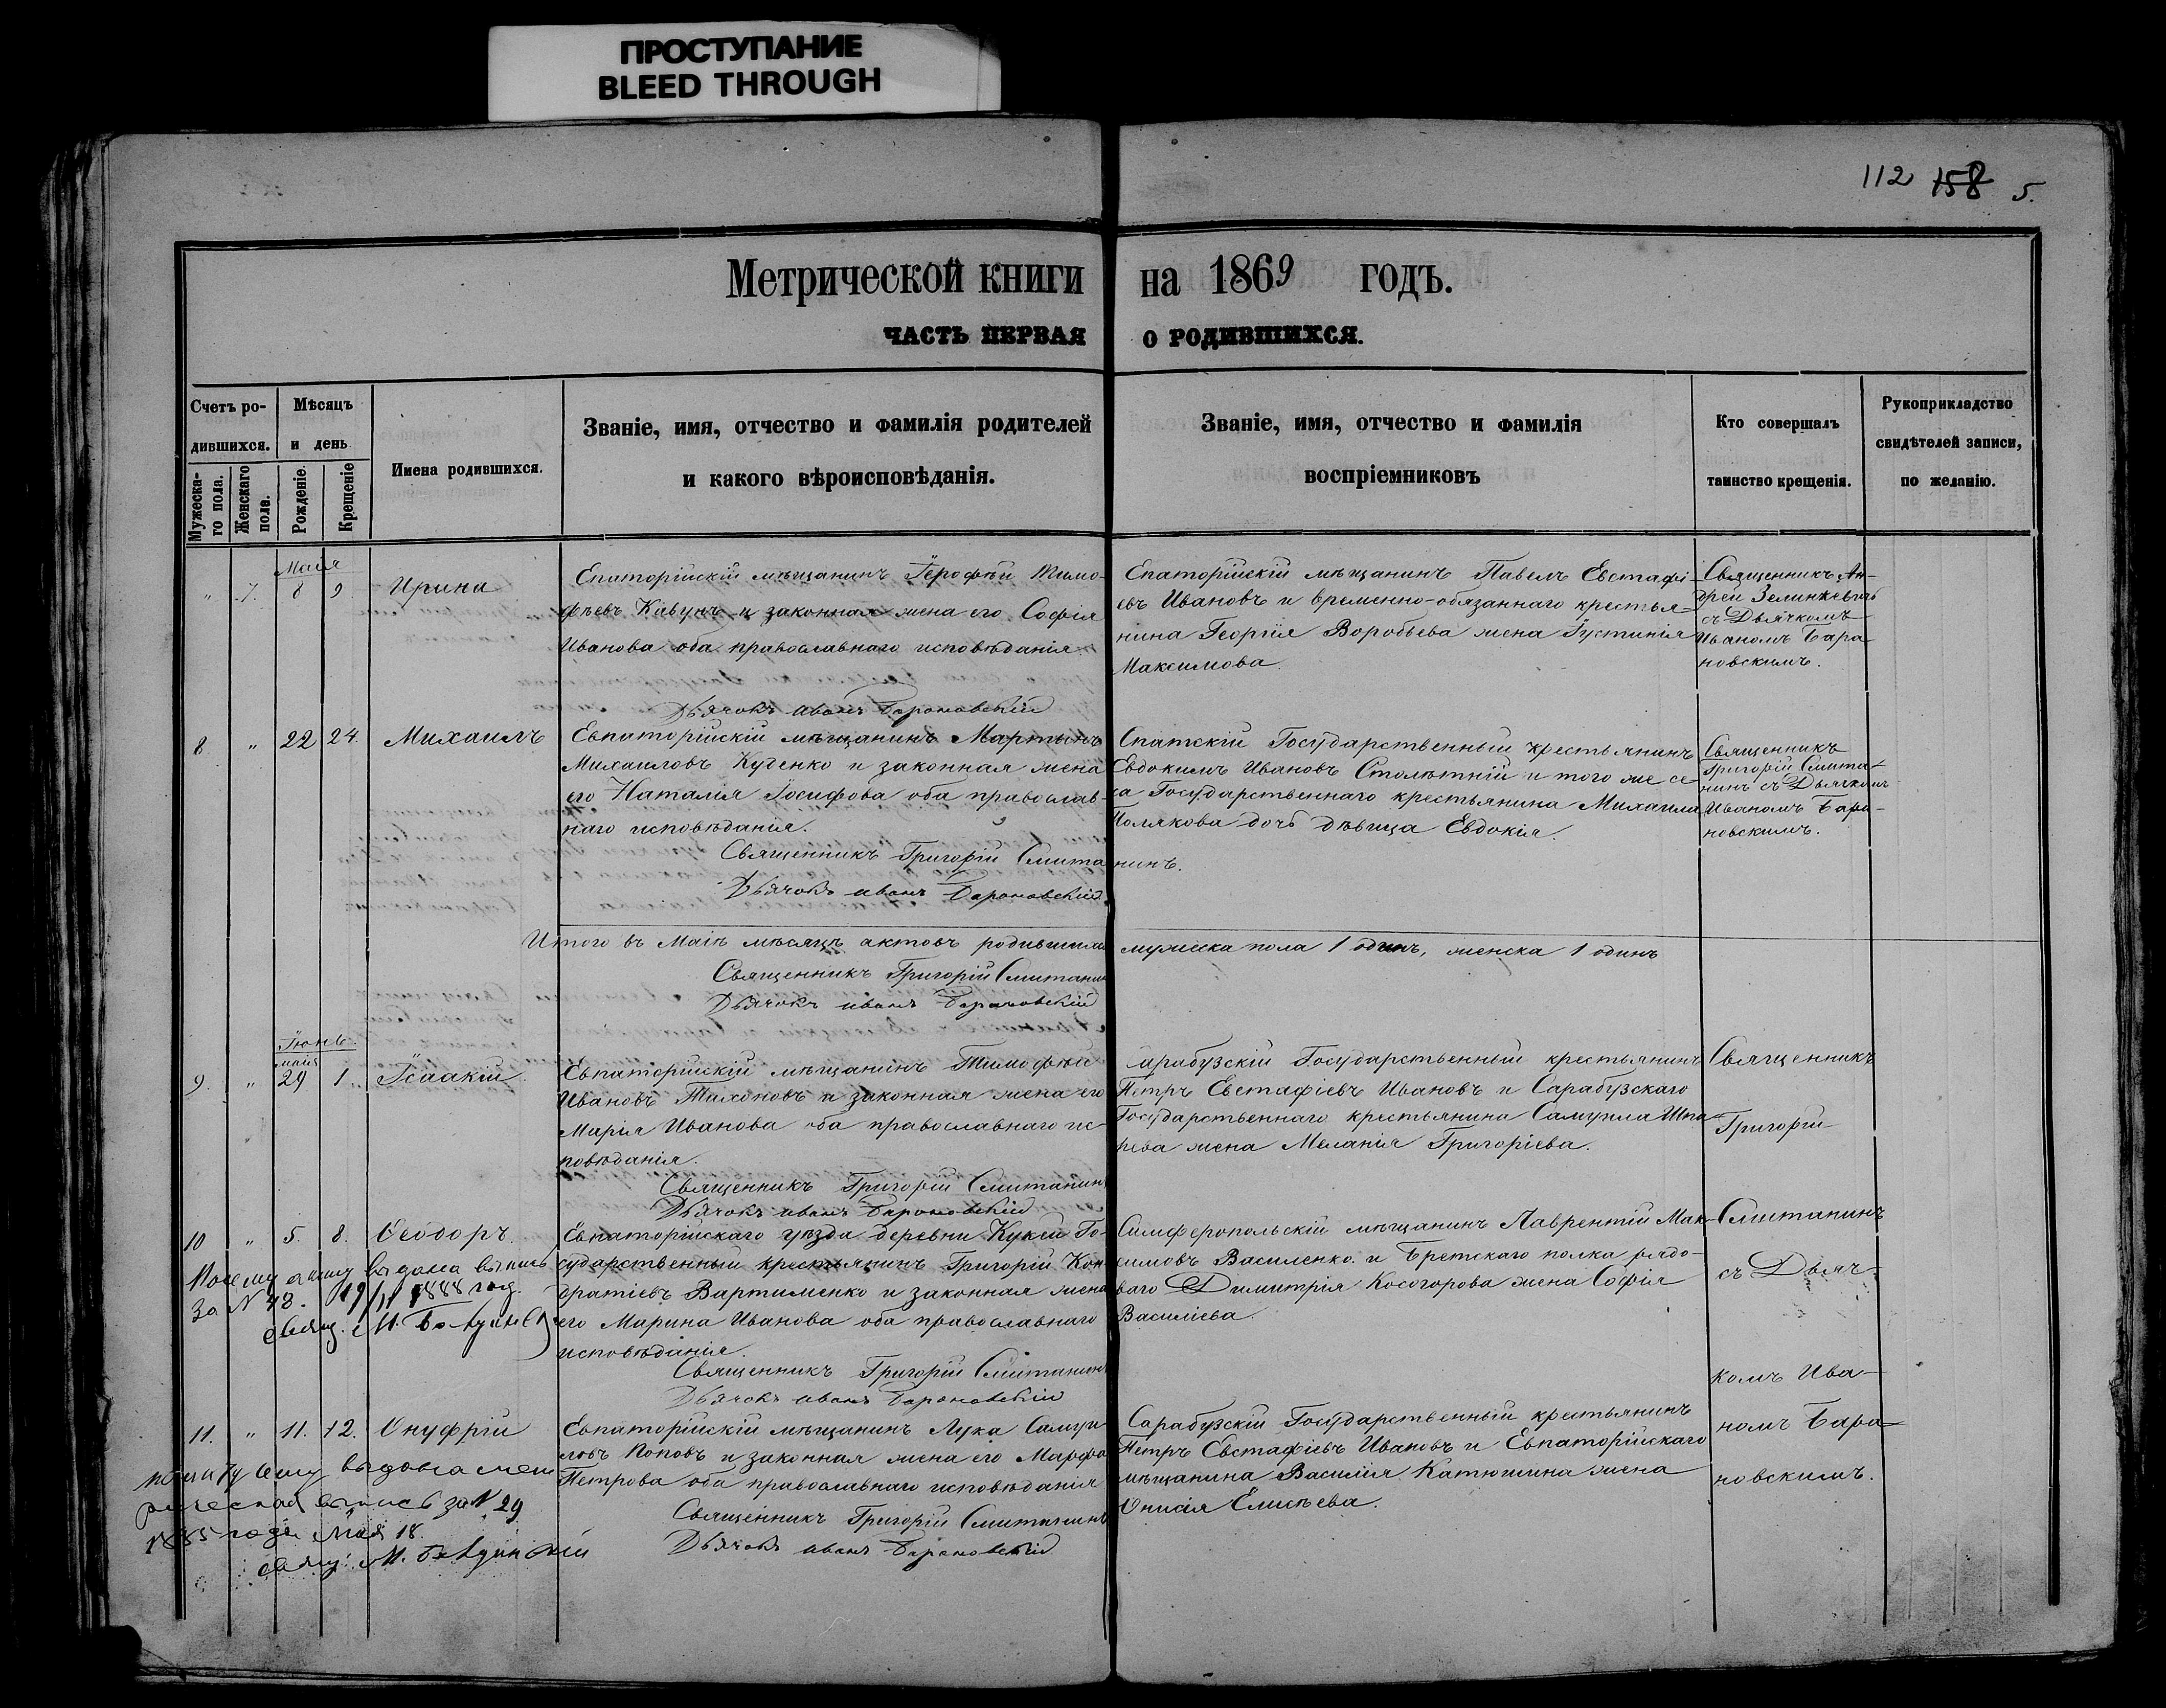 ПРОСТУПАНИЕ
BLEED THROUGH
112 158 5.
Метрической книги на 1869 годъ.
ЧАСТЬ ПЕРВАЯ О РОДИВШИХСЯ.
Счетъ ро-
дившихся.
Мужеска-
го пола.
Женскаго
пола.
Мѣсяцъ
и день
Рожденіе.
Крещеніе
Имена родившихся.
Званіе, имя, отчество и фамилія родителей
и какого вѣроисповѣданія.
Званіе, имя, отчество и фамилія
воспріемниковъ
Кто совершалъ
таинство крещенія.
Рукоприкладство
свидѣтелей записи,
по желанію.
Маія
" 7. 8 9. Ирина
Епаторійскій мѣщанинъ Іерофѣй Тимо-
фѣевъ Кавунъ и законная жена его Софія
Иванова оба православнаго исповѣданія.
Дьячокъ Иванъ Барановскій
Епаторійскій мѣщанинъ Павелъ Евстафі-
евъ Ивановъ и временно-обязаннаго крестья-
нина Георгія Воробьева жена Іустинія
Максимова.
Священникъ Ан-
дрей Зелинкевичъ
съ Дьячкомъ
Иваномъ Бара-
новскимъ.
8. " 22 24. Михаилъ
Евпаторійскій мѣщанинъ Мартынъ
Михаиловъ Куценко и законная жена
его Наталія Іосифова оба православ-
наго исповѣданія.
Священникъ Григорій Смитанинъ.
Дьячокъ Иванъ Барановскій
Спатскій Государственный крестьянинъ
Евдокимъ Ивановъ Столѣтній и того же се-
ла Государственнаго крестьянина Михаила
Полякова дочь дѣвица Евдокія.
Священникъ
Григорій Смита-
нинъ съ Дьячкомъ
Иваномъ Бара-
новскимъ.
Итого въ Маіѣ мѣсяцѣ актовъ родившихся мужеска пола 1 одинъ, женска 1 одинъ
Священникъ Григорій Смитанинъ
Дьячокъ Иванъ Барановскій
Іюнь.
маія
9. " 29 1. Ісаакій.
Евпаторійскій мѣщанинъ Тимофѣй
Ивановъ Тихоновъ и законная жена его
Марія Иванова оба православнаго ис-
повѣданія.
Священникъ Григорій Смитанинъ
Дьячокъ Иванъ Барановскій
Сарабузскій Государственный крестьянинъ
Петръ Евстафіевъ Ивановъ и Сарабузскаго
Государственнаго крестьянина Самуила
жена Меланія Григоріева.
Священникъ
Григорій
Смитанинъ
съ Дьяч-
комъ Ива-
номъ Бара-
новскимъ.
10 " 5. 8. Ѳеодоръ.
Евпаторійскаго уѣзда деревни Кукей Го-
сударственный крестьянинъ Григорій Кон-
дратіевъ Вартименко и законная жена
его Марина Иванова оба православнаго
исповѣданія.
Священникъ Григорій Смитанинъ
Дьячокъ Иванъ Барановскій
Симферопольскій мѣщанинъ Лаврентій Мак-
симовъ Василенко. и Бретскаго полка рядо-
ваго Димитрія Косогорова жена Софія
Василіева.
выдана выпись
за N 43. 19/ 1888 год.
свящ. М.
11. " 11. 12. Онуфрій
Евпаторійскій мѣщанинъ Лука Самуи-
ловъ Поповъ и законная жена его Марфа
Петрова оба православнаго исповѣданія
Священникъ Григорій Смитанинъ
Дьячокъ Иванъ Барановскій
Сарабузскій Государственный крестьянинъ
Петръ Евстафіевъ Ивановъ и Евпаторійскаго
мѣщанина Василія Катюшина жена
Онисія Елисѣева.
выдана мет
рическая выпись за N 29
1885 года Мая 18.
свящ. М.